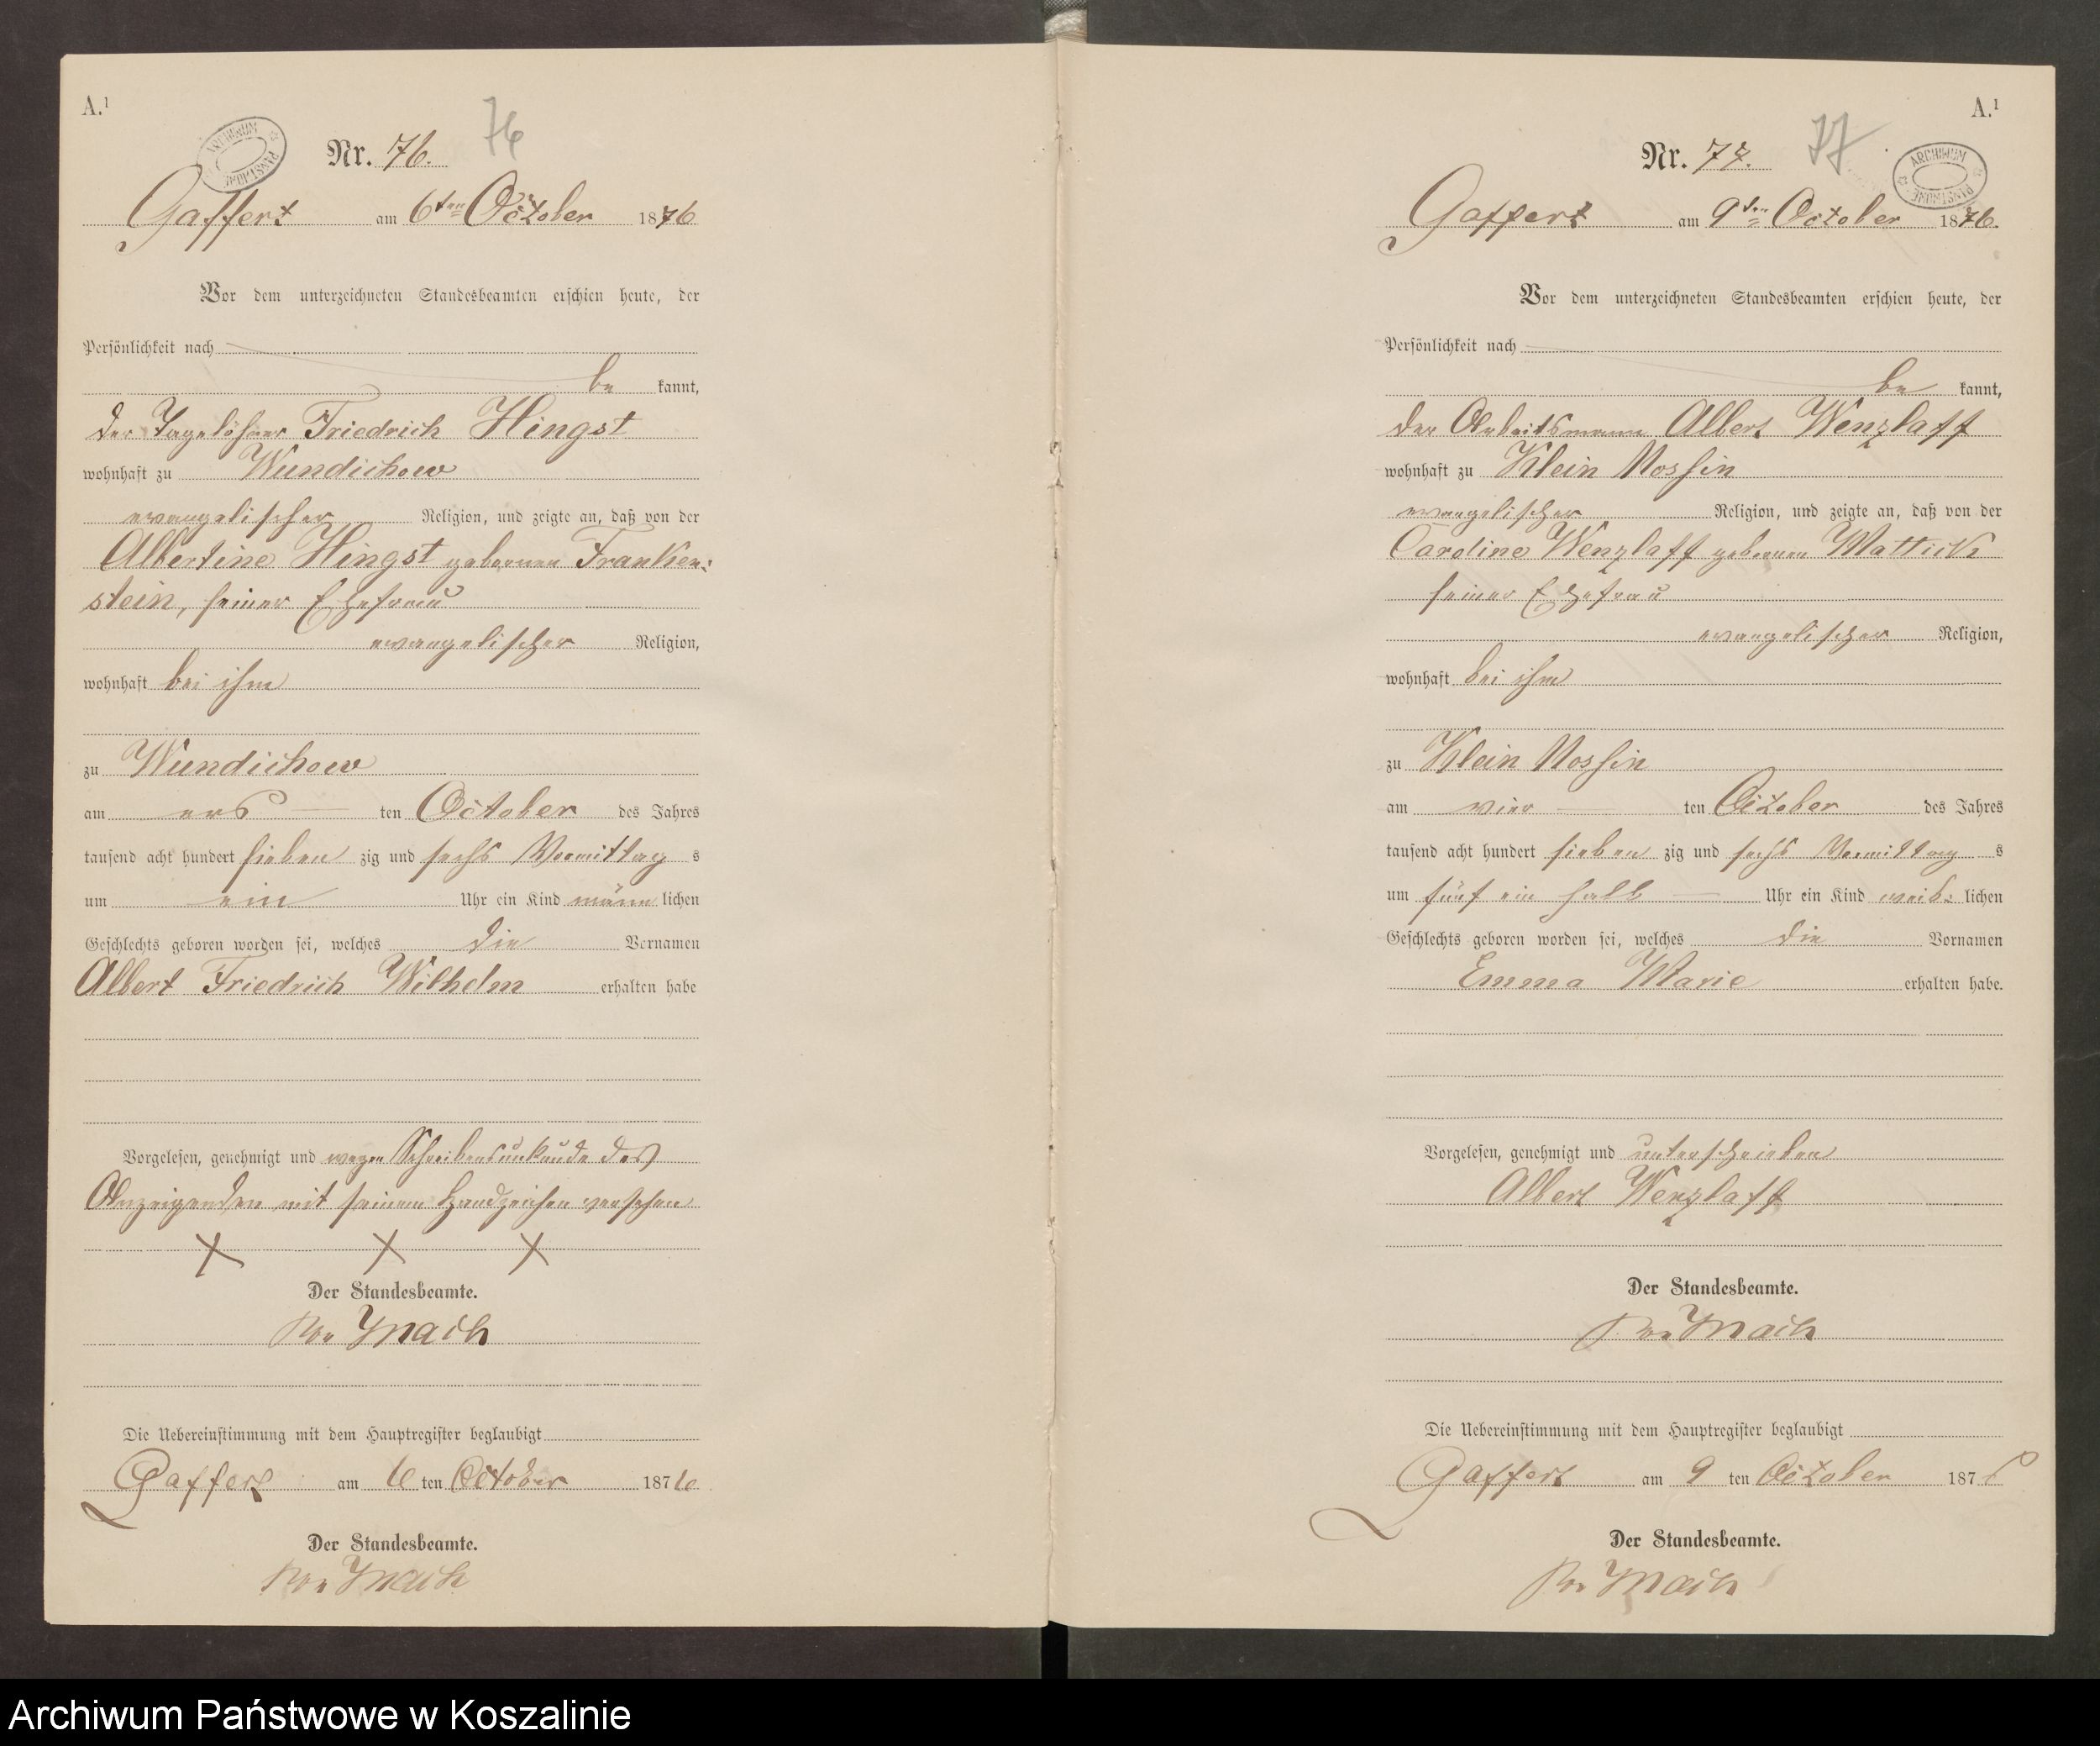 A.¹
ARCHIWUM PAŃSTWOWE
Nr. 76. 76
Gaffert am 6ten October 1876
Vor dem unterzeichneten Standesbeamten erschien heute, der
Persönlichkeit nach
be kannt,
der Tagelöhner Friedrich Hingst
wohnhaft zu Wundichow
evangelischer Religion, und zeigte an, daß von der
Albertine Hingst geborenen Franken-
stein, seiner Ehefrau
evangelischer Religion,
wohnhaft bei ihm
zu Wundichow
am ers ten October des Jahres
tausend acht hundert sieben zig und sechs Vormittag s
um ein Uhr ein Kind männ lichen
Geschlechts geboren worden sei, welches die Vornamen
Albert Friedrich Wilhelm erhalten habe
Vorgelesen, genehmigt und wegen Schreibensunkunde des
Anzeigenden mit seinem Handzeichen versehen
X X X
Der Standesbeamte.
Die Uebereinstimmung mit dem Hauptregister beglaubigt
Gaffert am 6 ten October 1876
Der Standesbeamte.
A.¹
Nr. 77. 77
ARCHIWUM PAŃSTWOWE
Gaffert am 9ten October 1876.
Vor dem unterzeichneten Standesbeamten erschien heute, der
Persönlichkeit nach
be kannt,
der Arbeitsmann Albert Wenzlaff
wohnhaft zu Klein Nossin
evangelischer Religion, und zeigte an, daß von der
Caroline Wenzlaff geborenen Mattick
seiner Ehefrau
evangelischer Religion,
wohnhaft bei ihm
zu Klein Nossin
am vier ten October des Jahres
tausend acht hundert sieben zig und sechs Vormittag s
um fünf ein halb Uhr ein Kind weib- lichen
Geschlechts geboren worden sei, welches die Vornamen
Emma Marie erhalten habe.
Vorgelesen, genehmigt und unterschrieben
Albert Wenzlaff
Der Standesbeamte.
Die Uebereinstimmung mit dem Hauptregister beglaubigt
Gaffert am 9 ten October 1876
Der Standesbeamte.
Archiwum Państwowe w Koszalinie